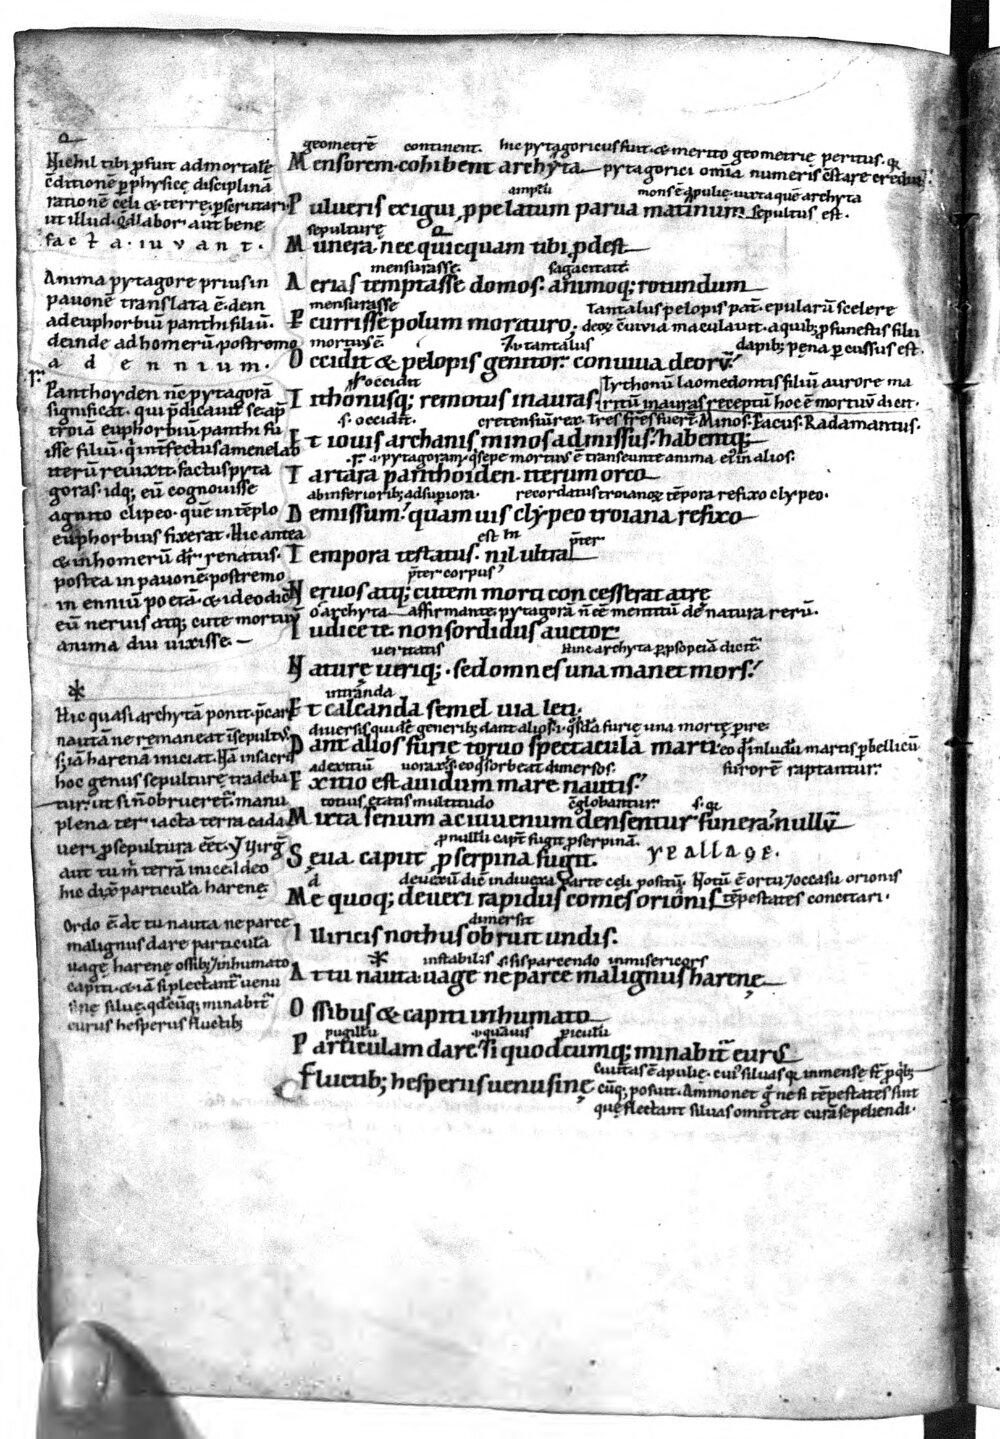 Nichil tibi ꝓfuit ad mortalē
c̄ditionē ꝑ physicę disciplinā
rationē cęli & terrę ꝑscrutari
ut illud. Q̄d labor. aut bene
facta. iuvant.
Anima pytagore prius in
pavonē translata ē. dein
ad euphorbiū panthi filiū.
deinde ad homerū postremo
ad ennium.
Panthoyden nē pytagorā
significat. qui p̄dicavit se apð
troiā euphorbiū panthi fu
isse filiū. q̇ int̄fectus a menelao
iterū revixit. factus pyta
goras. idq; eū cognovisse
agnito clipeo. quē in tēplo
euphorbius fixerat. Hic antea
& in homerū dr̄ renatus.
postea in pavonē. postremo
in enniū poetā. & ideo dic̄
eū nervis atq; cute mortuū
anima diu vixisse.
Hic quasi archytā ponit p̄cari
nautā ne remaneat īsepultus.
s; iā harenā iniciat. Nā in sacris
hoc genus sepulturę tradeba
tur. ut si n̄ obrueret̄. manu
plena ter iacta terra cada
veri ꝓ sepultura eēt. Virḡ.
aut tu m̄ terrā inice. Ideo
hic dix̄ particula harenę
Ordo ē. At tu nauta ne parce
malignus dare particulā
vagę harenę ossib; inhumato
capiti. & iā si plectant̄ venu
sinę silvę. q̄dcūq; minabit̄
eurus hesperus fluctib;
geometrē continent. hic pytagoricus fuit. & merito geometrię peritus. q;
Mensorem cohibent archyta pytagorici om̄ia numeris c̄stare credunt.
amplū mons ē apulię. iuxta quē archyta
Pulveris exigui ꝓpe latum parva matinum sepultus est.
sepulturę
Munera. nec quicquam tibi ꝓdest
mensurasse. sagacitate
Aerias temptasse domos. animoq; rotundum
mensurasse Tantalus pelopis pat̄. epularū scelere
Percurrisse polum morituro. deoꝝ c̄vivia maculavit. a quib; ꝓ funestis filii
mortuˢ ē i. tantalus dapib; pęna ꝑcussus est.
Occidit & pelopis genitor. conviva deorū.
occidit Tythonū laomedontis filiū aurore ma
Tithonusq; remotus in auras. ritū in auras receptū hoc ē mortuū dicit.
s. occidit. cretensiū rex. Tres fr̄es fuer̄t. Minos. Eacus. Radamantus.
Et iovis archanis minos admissus. habentq;
i. pytagoram. q̇ sepe mortuˢ ē transeunte anima ei in alios.
Tartara panthoiden. iterum orco
ab inferiorib; ad supiora. recordatus troianoꝝ tēpora refixo clypeo.
Demissum. quamvis clypeo troiana refixo
est p̄ter
Tempora testatus. nil ultra
p̄ter corpus
Nervos atq; cutem morti concesserat atrę
o archyta affirmante. pytagorā n̄ eē mentitū de natura rerū.
Iudice te non sordidus auctor
veritatis Hinc archyta ꝑ ꝓsopeiā dicit̄
Naturę veriq;. sed omnes una manet mors.
intranda
Et calcanda semel via leti.
diversis quidē generib; dant alios. una morte ꝑire.
Dant alios furię torvo spectacula marti eo q̇ in ludū martis ꝑ bellicū
ad exitiū vorax. eo q̇ sorbeat diversos. furorē raptantur.
Exitio est avidum mare nautis.
totius etatis multitudo c̄globantur. s. q;
Mixta senum ac iuvenum densentur funera. nullū
ꝓ nullū capit̄ fugit ꝓserpinā.
Sęva caput ꝓserpina fugit. ypallage.
devexū dic̄ in divexa parte cęli positū. Notū ē ortu & occasu orionis
Me quoq; devexi rapidus comes orionis tēpestates concitari.
dimersit
Illiricis nothus obruit undis.
instabilis s. sis parcendo inmisericors
At tu nauta vage ne parce malignus harenę
Ossibus & capiti inhumato
pugillū i. quavis piculū
Particulam dare. si quodcumq; minabit̄ eurus
civitas ē apulię.
Fluctib; hesperiis venusinę
quę flectant silvas omittat curā sepeliendi.